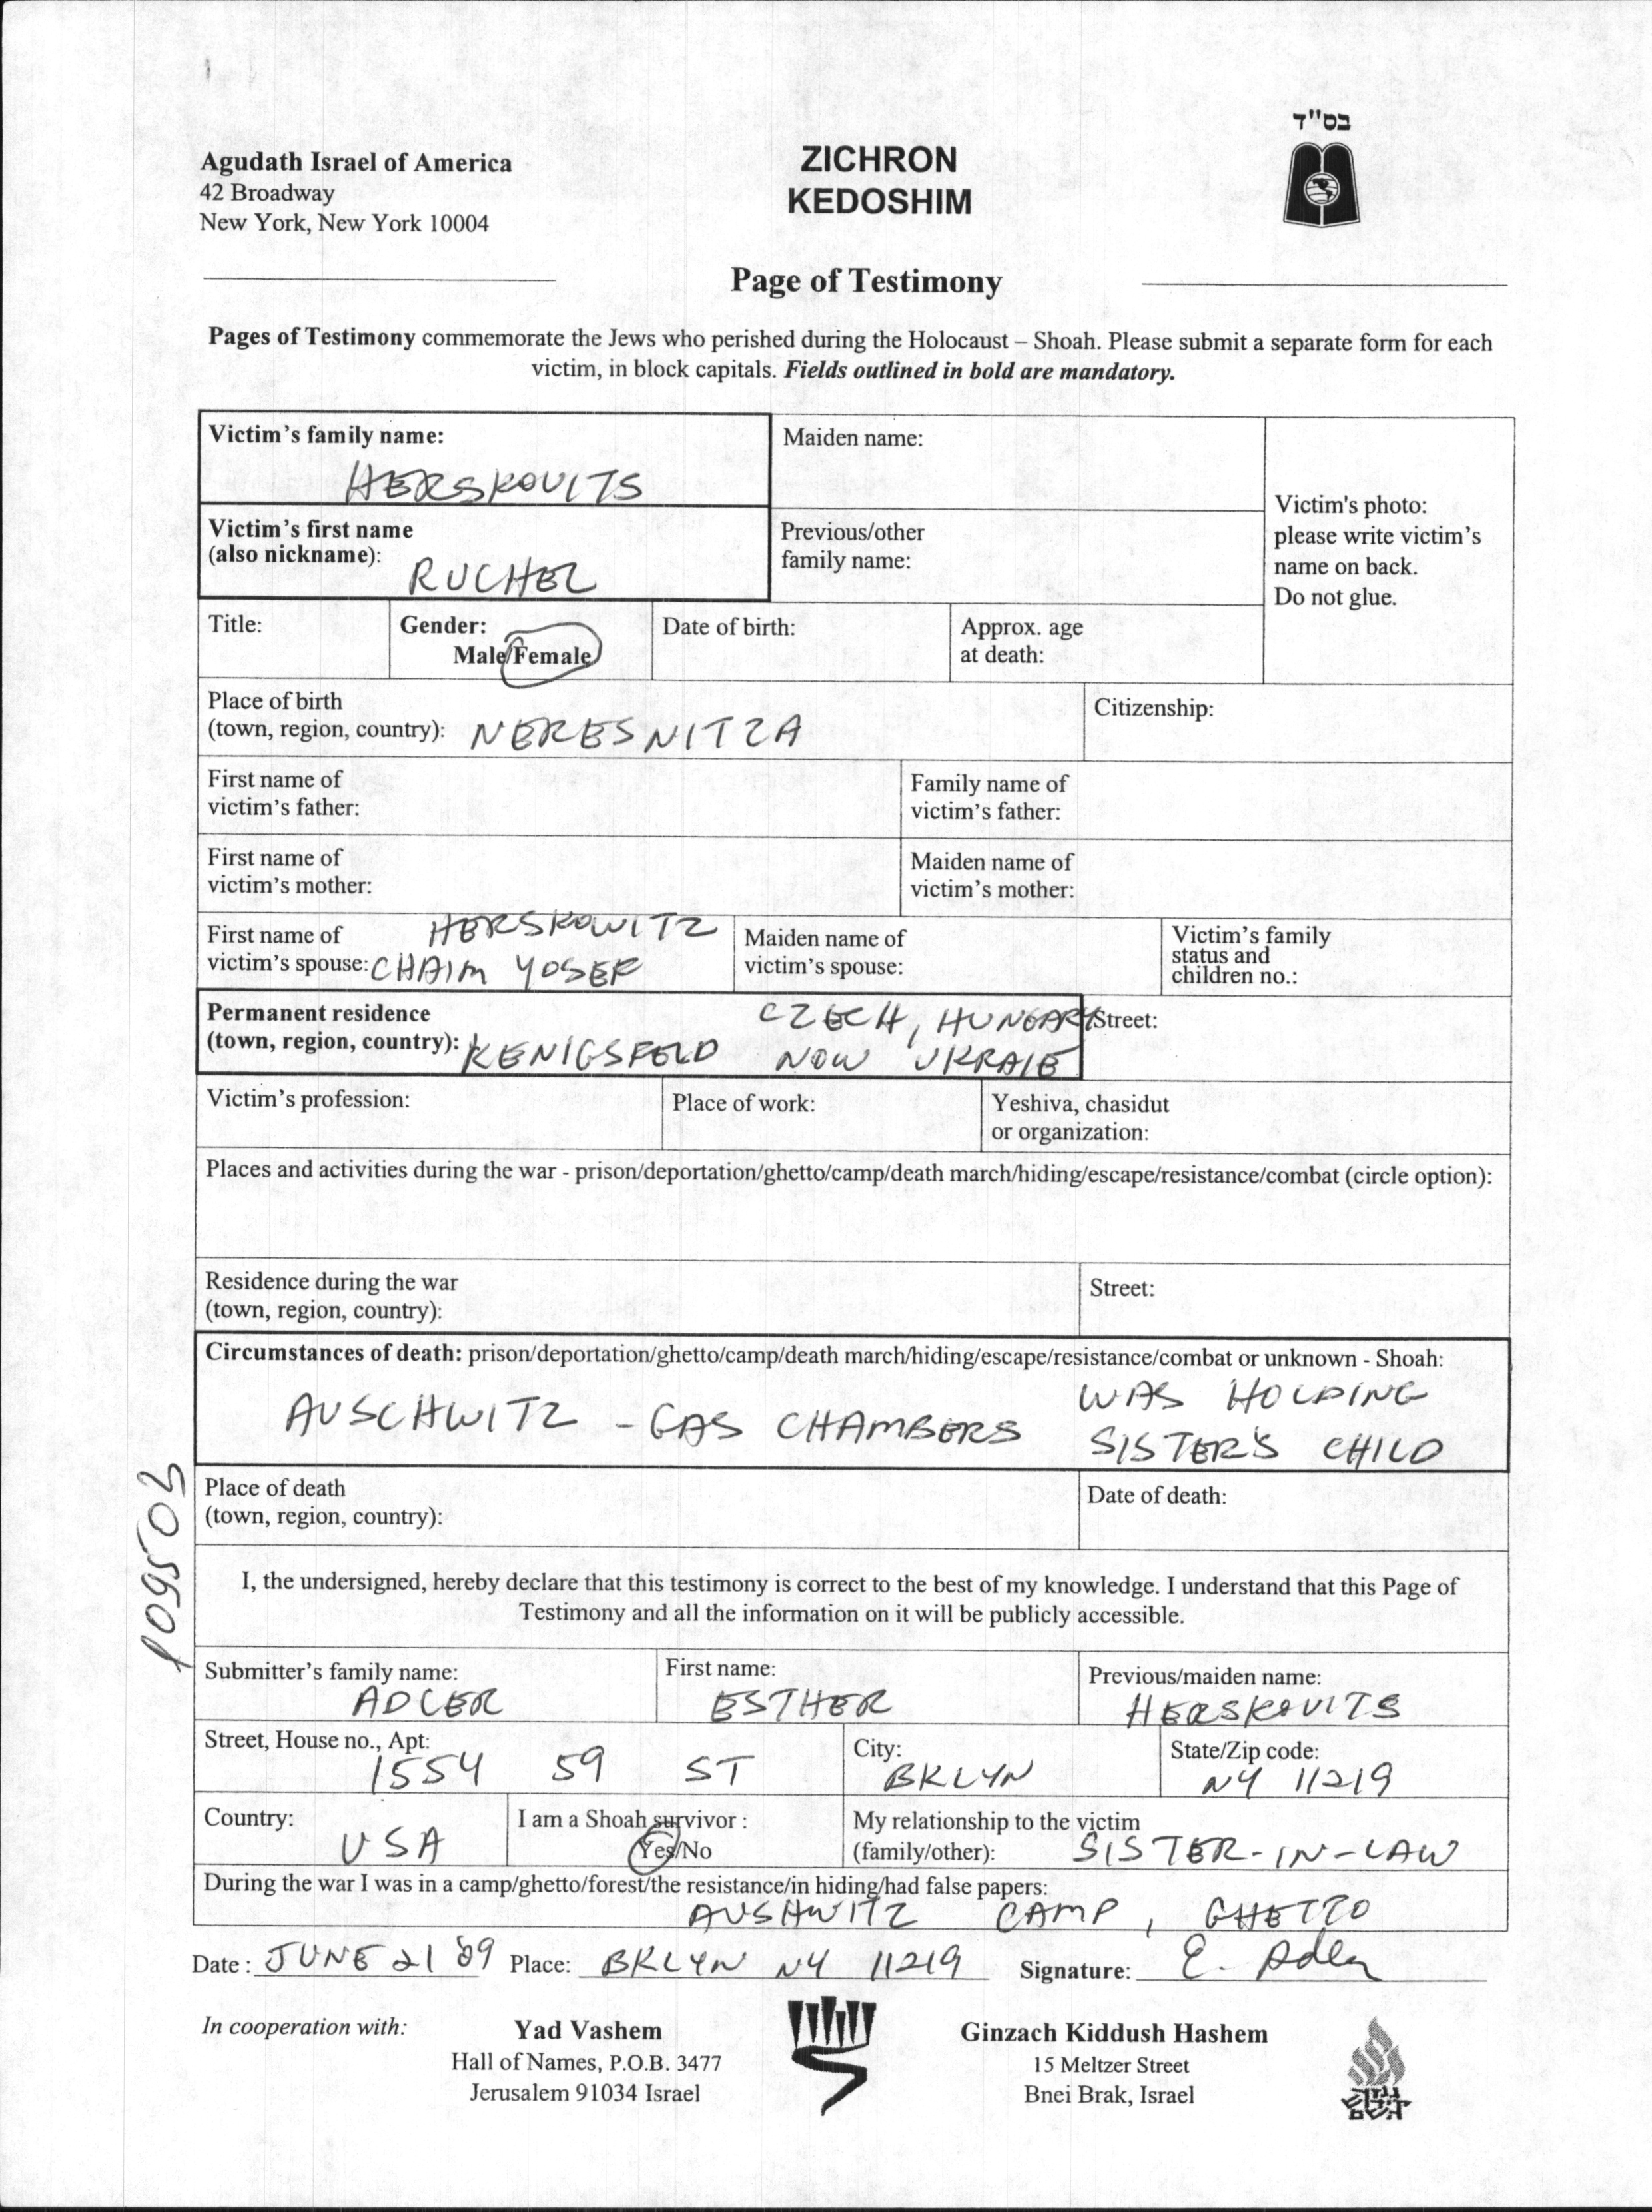 בס"ד
Agudath Israel of America
42 Broadway
New York, New York 10004
ZICHRON
KEDOSHIM
Page of Testimony
Pages of Testimony commemorate the Jews who perished during the Holocaust – Shoah. Please submit a separate form for each
victim, in block capitals. Fields outlined in bold are mandatory.
Victim's family name:
HERSKOVITS
Maiden name:
Victim's photo:
please write victim's
name on back.
Do not glue.
Victim's first name
(also nickname):
RUCHEL
Previous/other
family name:
Title:
Gender:
Male/Female
Date of birth:
Approx. age
at death:
Place of birth
(town, region, country): NERESNITZA
Citizenship:
First name of
victim's father:
Family name of
victim's father:
First name of
victim's mother:
Maiden name of
victim's mother:
First name of HERSKOWITZ
victim's spouse: CHAIM YOSEF
Maiden name of
victim's spouse:
Victim's family
status and
children no.:
Permanent residence CZECH, HUNGARY
(town, region, country): KENIGSFELD NOW UKRAIE
Street:
Victim's profession:
Place of work:
Yeshiva, chasidut
or organization:
Places and activities during the war - prison/deportation/ghetto/camp/death march/hiding/escape/resistance/combat (circle option):
Residence during the war
(town, region, country):
Street:
Circumstances of death: prison/deportation/ghetto/camp/death march/hiding/escape/resistance/combat or unknown - Shoah:
AUSCHWITZ - GAS CHAMBERS
WAS HOLDING
SISTER'S CHILD
Place of death
(town, region, country):
Date of death:
109503
I, the undersigned, hereby declare that this testimony is correct to the best of my knowledge. I understand that this Page of
Testimony and all the information on it will be publicly accessible.
Submitter's family name:
ADLER
First name:
ESTHER
Previous/maiden name:
HERSKOVITS
Street, House no., Apt:
1554 59 ST
City:
BKLYN
State/Zip code:
NY 11219
Country:
USA
I am a Shoah survivor :
Yes/No
My relationship to the victim
(family/other): SISTER-IN-LAW
During the war I was in a camp/ghetto/forest/the resistance/in hiding/had false papers:
AUSHWITZ CAMP, GHETTO
Date: JUNE 21 '09 Place: BKLYN NY 11219 Signature: E. Adler
In cooperation with:
Yad Vashem
Hall of Names, P.O.B. 3477
Jerusalem 91034 Israel
Ginzach Kiddush Hashem
15 Meltzer Street
Bnei Brak, Israel